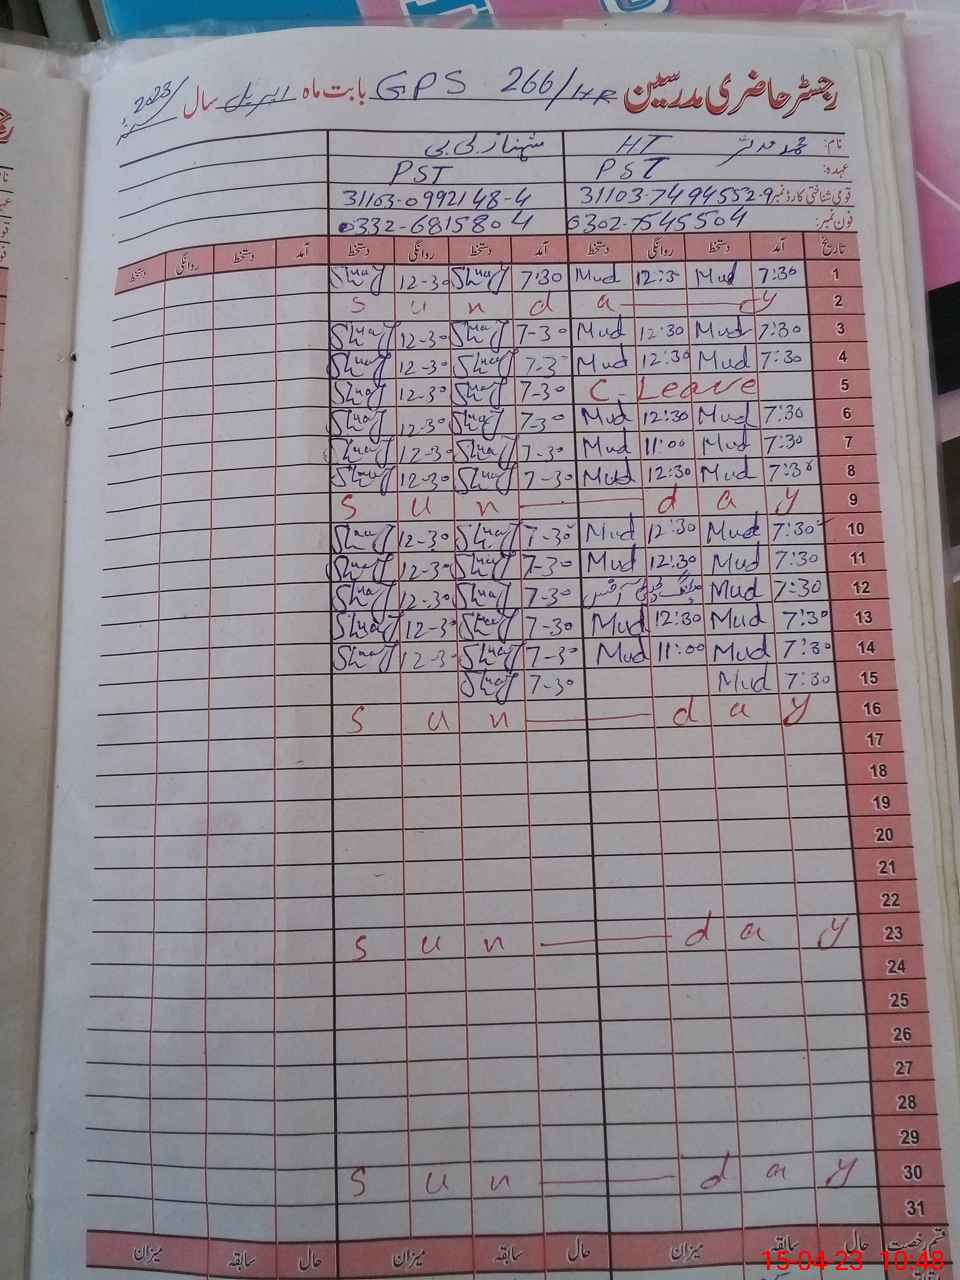 رجسٹر حاضری مدرسین GPS 266/HR بابت ماہ اپریل سال 2023ء
نام: محمد مدثر HT شہناز بی بی
عہدہ: PST PST
قومی شناختی کارڈ نمبر 31103-7494552-9 31103-0992148-4
فون نمبر: 0302-7545504 0332-6815804
تاریخ آمد دستخط روانگی دستخط آمد دستخط روانگی دستخط آمد دستخط روانگی دستخط
1 7:30 Mud 12:30 Mud 7:30 Shnaz 12-30 Shnaz
2 S u n d a y
3 7:30 Mud 12:30 Mud 7-30 Shnaz 12-30 Shnaz
4 7:30 Mud 12:30 Mud 7-30 Shnaz 12-30 Shnaz
5 C. Leave 7-30 Shnaz 12-30 Shnaz
6 7:30 Mud 12:30 Mud 7-30 Shnaz 12-30 Shnaz
7 7:30 Mud 11:00 Mud 7-30 Shnaz 12-30 Shnaz
8 7:30 Mud 12:30 Mud 7-30 Shnaz 12-30 Shnaz
9 S u n d a y
10 7:30 Mud 12:30 Mud 7-30 Shnaz 12-30 Shnaz
11 7:30 Mud 12:30 Mud 7-30 Shnaz 12-30 Shnaz
12 7:30 Mud آفس 7-30 Shnaz 12-30 Shnaz
13 7:30 Mud 12:30 Mud 7-30 Shnaz 12-30 Shnaz
14 7:30 Mud 11:00 Mud 7-30 Shnaz 12-30 Shnaz
15 7:30 Mud 7-30 Shnaz
16 S u n d a y
17
18
19
20
21
22
23 S u n d a y
24
25
26
27
28
29
30 S u n d a y
31
قسم رخصت حال سابقہ میزان حال سابقہ میزان حال سابقہ میزان
15-04-23 10:48